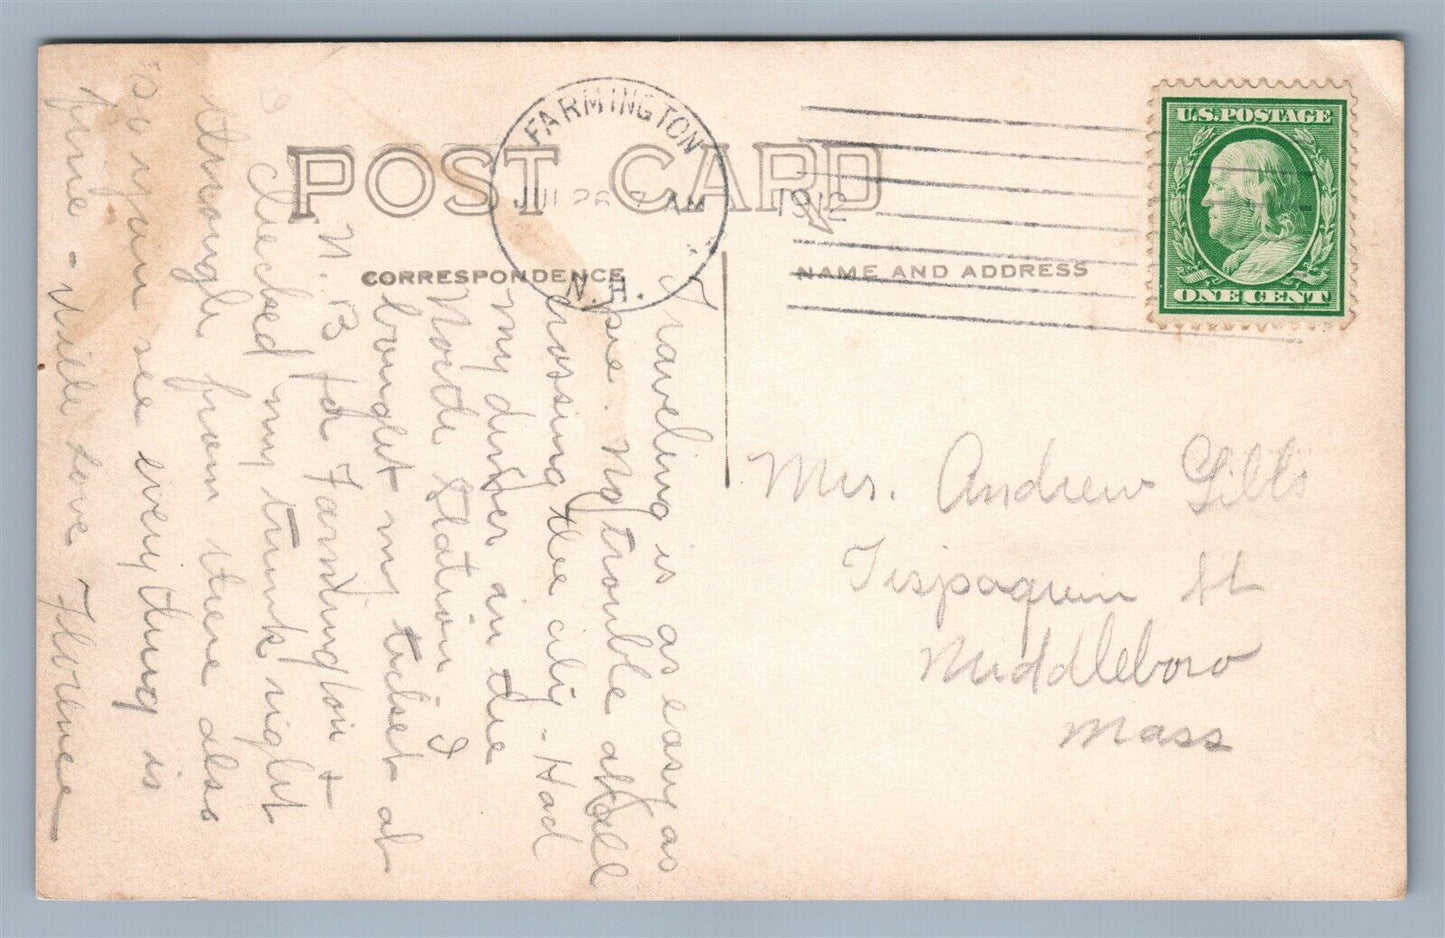 POST CARD
FARMINGTON
JUL 26 7 AM
1912
N.H.
CORRESPONDENCE
NAME AND ADDRESS
U.S. POSTAGE
ONE CENT
Traveling is as easy as
pie. No trouble at all
crossing the city - Had
my dinner in the
North Station. I
bought my ticket at
N. B to Farmington +
checked my trunk right
through from there also
so you see everything is
fine - With love Florence
Mrs. Andrew Gibbs
Tispaquin St
Middleboro
Mass